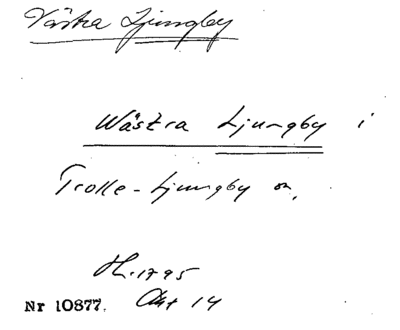 Västra Ljungby
Wästra Ljungby i
Trolle-Ljungby sn,
Hl. 1795
Nr 10877. Akt 14